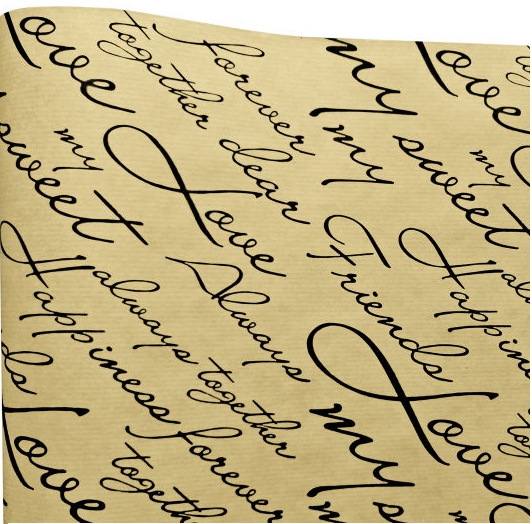 Love
together
forever
my
Love
my
sweet
dear
my
sweet
my
Love
Happiness
always
Always
together
Friends
Happin
Love
forever
together
Love
my